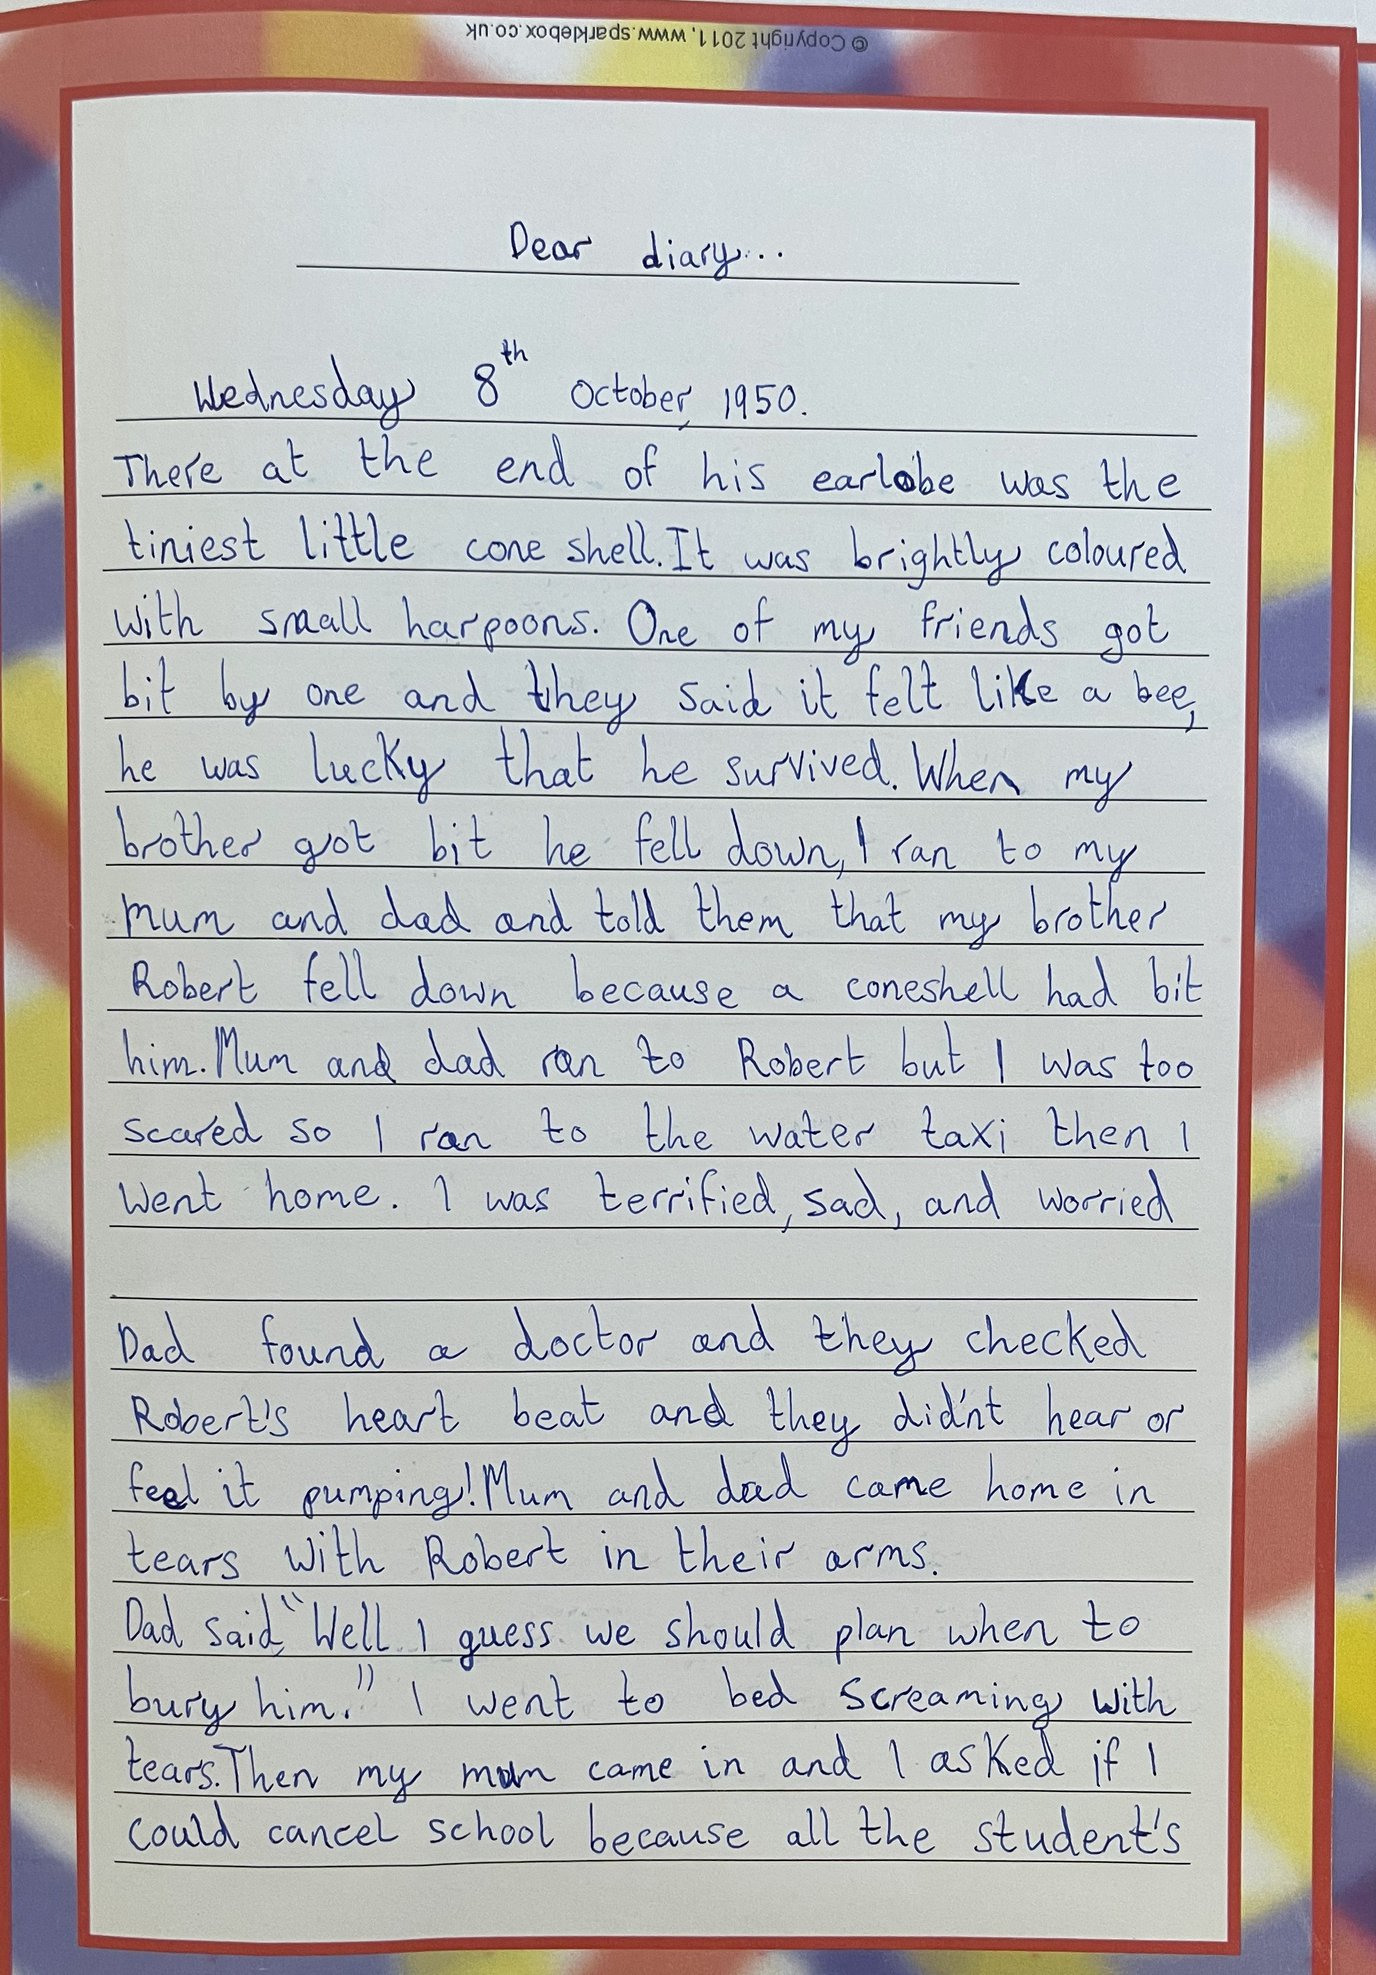 © Copyright 2011, www.sparklebox.co.uk
Dear diary...
Wednesday 8th October, 1950.
There at the end of his earlobe was the
tiniest little cone shell. It was brightly coloured
with small harpoons. One of my friends got
bit by one and they said it felt like a bee,
he was lucky that he survived. When my
brother got bit he fell down, I ran to my
mum and dad and told them that my brother
Robert fell down because a coneshell had bit
him. Mum and dad ran to Robert but I was too
scared so I ran to the water taxi then I
went home. I was terrified, sad, and worried
Dad found a doctor and they checked
Robert's heart beat and they did'nt hear or
feel it pumping! Mum and dad came home in
tears with Robert in their arms.
Dad said, "Well I guess we should plan when to
bury him." I went to bed screaming with
tears. Then my mum came in and I asked if I
could cancel school because all the student's